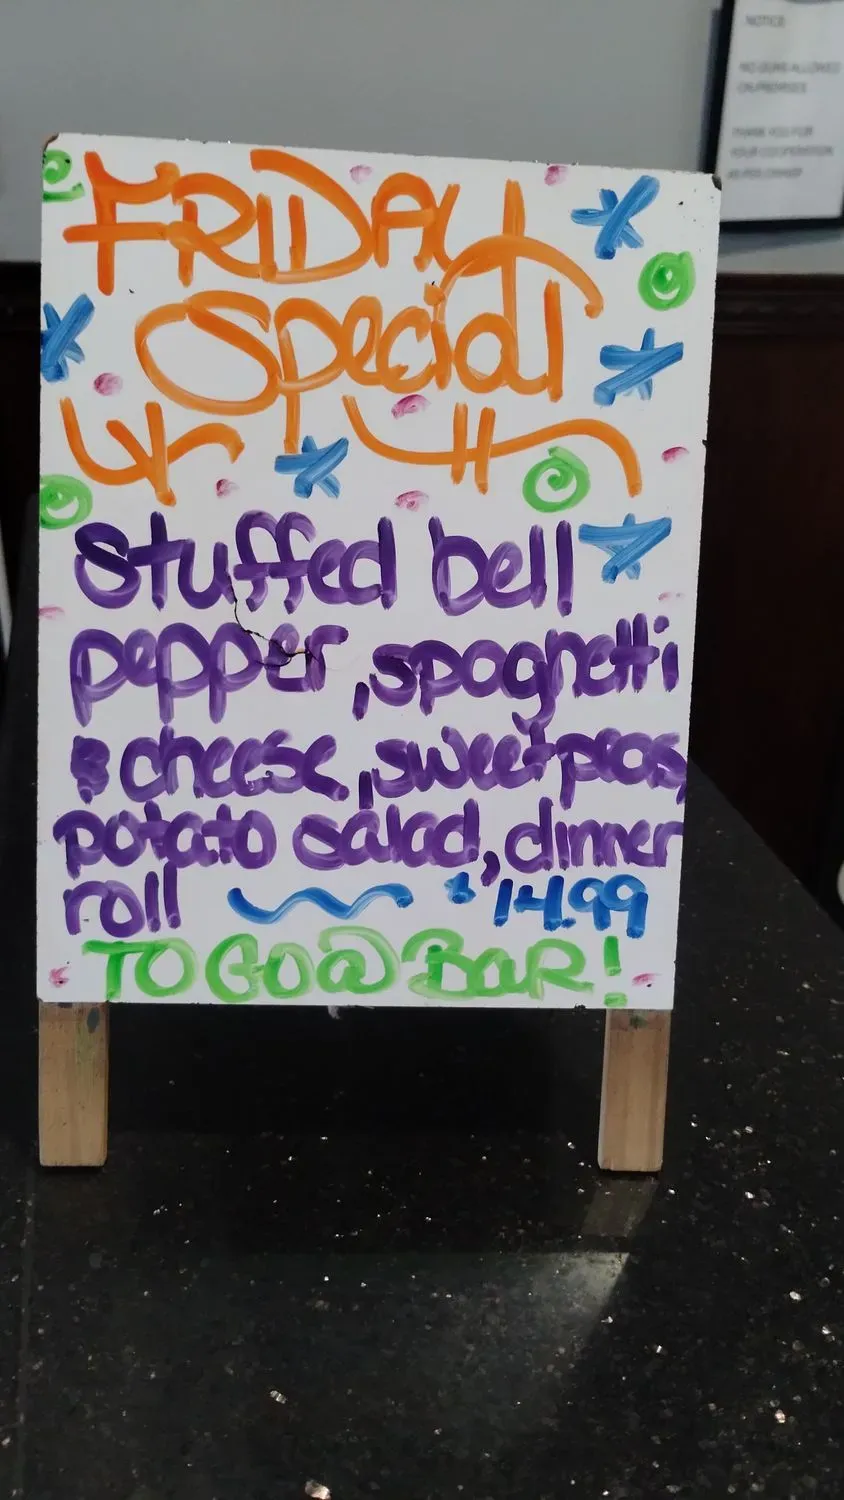 FRIDAY
Special
Stuffed bell
pepper, spaghetti
& cheese, sweet peas,
potato salad, dinner
roll ~ $14.99
TO GO @ BAR!
NOTICE
NO GUNS ALLOWED
ON PREMISES
THANK YOU FOR
YOUR COOPERATION